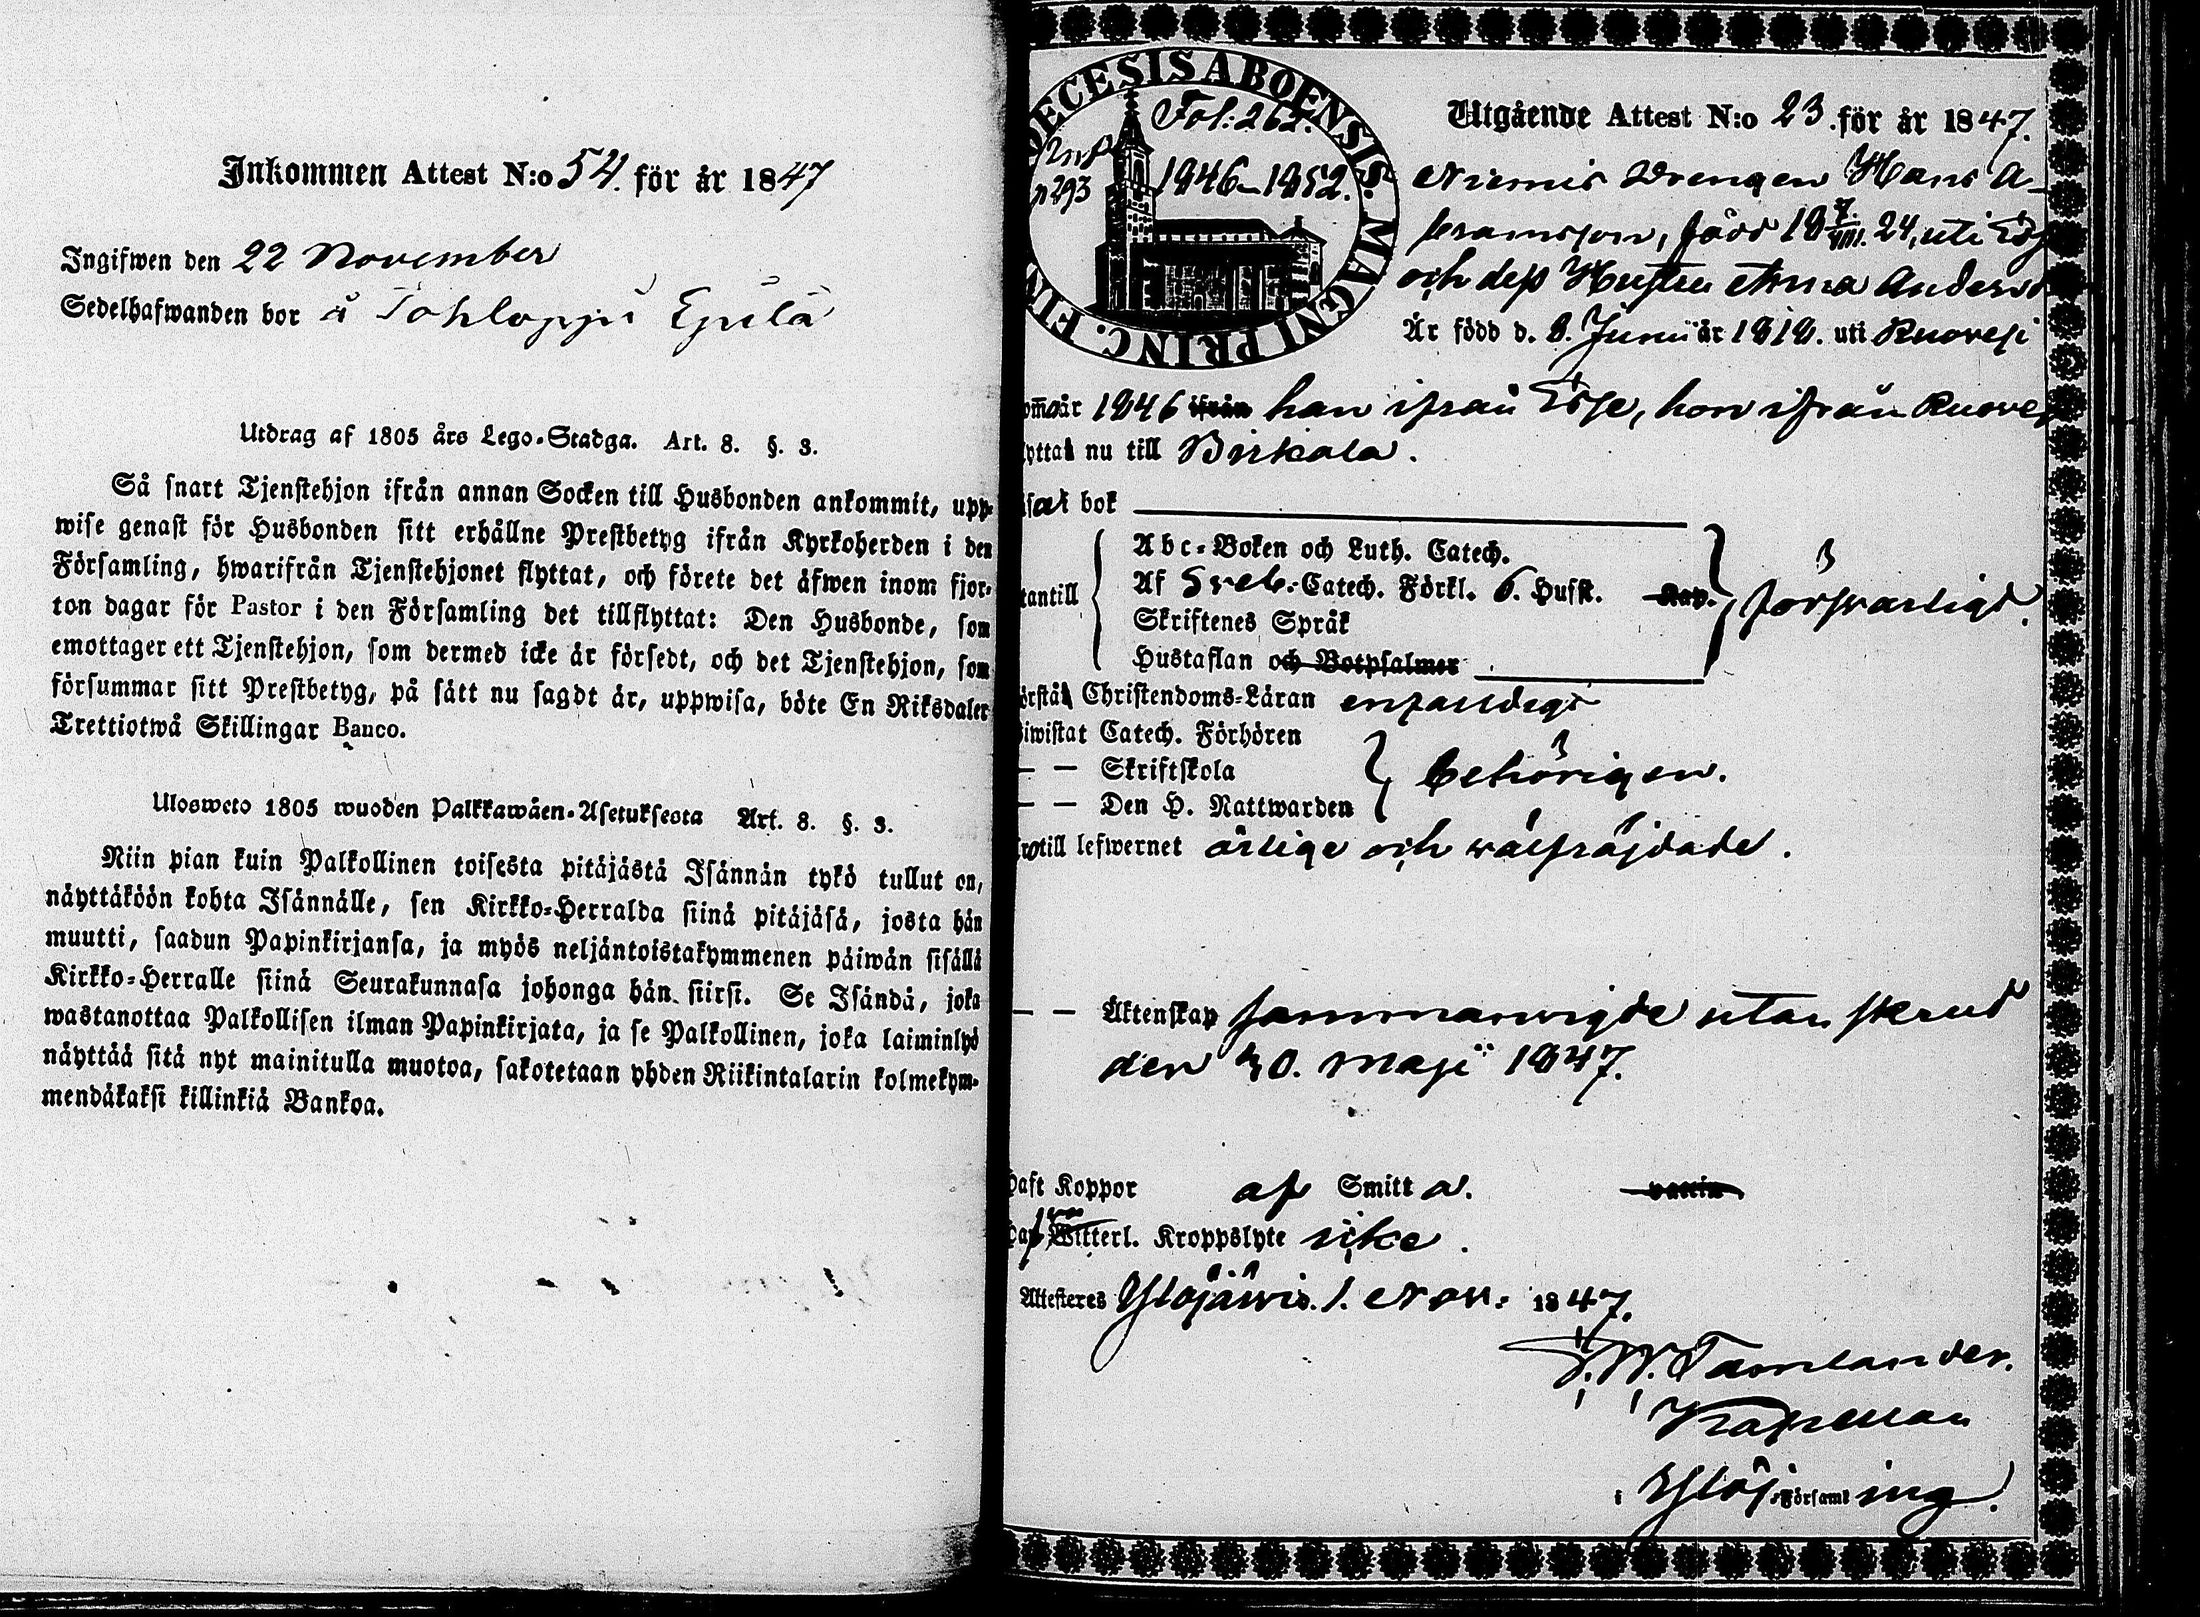 Inkommen Attest N:o 54. för år 1847
Ingifwen den 22 November
Sedelhafwanden bor å Tohloppi Epilä
Utdrag af 1805 års Lego-Stadga. Art. 8. §. 3.
Så snart Tjenstehjon ifrån annan Socken till Husbonden ankommit, upp-
wise genast för Husbonden sitt erhållne Prestbetyg ifrån Kyrkoherden i den
Församling, hwarifrån Tjenstehjonet flyttat, och förete det äfwen inom fjor-
ton dagar för Pastor i den Församling det tillflyttat: Den Husbonde, som
emottager ett Tjenstehjon, som dermed icke är försedt, och det Tjenstehjon, som
försummar sitt Prestbetyg, på sätt nu sagdt är, uppwisa, böte En Riksdaler
Trettiotwå Skillingar Banco.
Ulosweto 1805 wuoden Palkkawäen-Asetuksesta Art. 8. §. 3.
Niin pian kuin Palkollinen toisesta pitäjästä Isännän tykö tullut on,
näyttäköön kohta Isännälle, sen Kirkko-Herralda siinä pitäjäsä, josta hän
muutti, saadun Papinkirjansa, ja myös neljäntoistakymmenen päiwän sisällä
Kirkko-Herralle siinä Seurakunnasa johonga hän siirsi. Se Isändä, joka
wastanottaa Palkollisen ilman Papinkirjata, ja se Palkollinen, joka laiminlyö
näyttää sitä nyt mainitulla muotoa, sakotetaan yhden Riikintalarin kolmekym-
mendäkaksi killinkiä Bankoa.
DECESIS ABOENSIS. MAGNI PRINC. FIN
Fol: 262.
p 293
1846-1852.
Utgående Attest N:o 23. för år 1847.
Niemis Drengen Hans A-
bramsson, född 18 7/VIII. 24, uti
och dess Hustru Anna Anders
År född d. 8. Junii år 1818. uti Ruovesi
år 1846 ifrån han ifrån hon ifrån Ruoves
nu till Birkala.
bok
Abc-Boken och Luth. Catech.
Af Sveb. Catech. Förkl. 6. Husst. Kap.
Skriftenes Språk
Hustaflan och Botpsalmer
försvarligt.
Christendoms-Läran enfaldigt
Catech. Förhören
— — Skriftskola
— — Den H. Nattwarden
behörigen.
till lefwernet ärlige och välfräjdade.
— — Äktenskap sammanvigde utan skrud
den 30. Maji 1847.
haft Koppor af Smitta. vaccin.
witterl. Kroppslyte icke.
Attesteres Ylöjärvi. 1. Nov. 1847.
F. W. Tamlander.
Kapellan
i Ylöj. Församling.